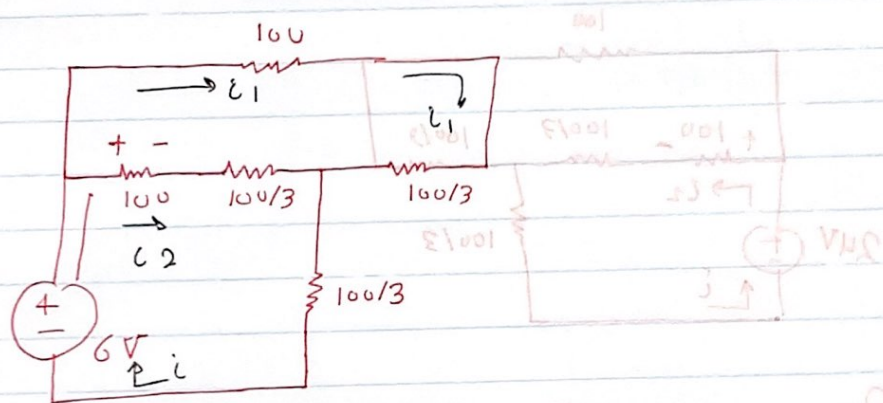 100
i1
i1
+ -
100 100/3 100/3
i2
100/3
+
-
6V
i